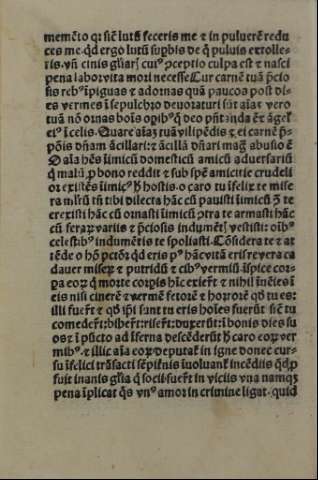 memēto q: sic̄ lutū feceris me & in puluerē redu
ces me. qd̄ ergo lutū suꝑbis de q̄ puluis extolle-
ris. vn̄ cinis gl̄iarꝭ cui⁹ ↄceptio culpa est & nasci
pena labor vita mori necesse Cur carnē tuā p̄cio
sis reb⁹ īpiguas & adornas quā paucos post di-
es vermes ī sepulchro deuoraturi sūt aīaʒ vero
tuā nō ornas boīs oꝑib⁹ q̄ deo pn̄tanda ē & āgel̄
ei⁹ ī celis. Quare aīaʒ tuā vilipēdis & ei carnē p̄-
pōis dn̄am ācillari: & ācillā dn̄ari mag⁹ abusio ē
O aīa hēs īimicū domesticū amicū aduersariū
q̄ malū ꝓ bono reddit & sub spē amicitie crudeli
or existēs īimic⁹ & hostis. o caro tu īfelix te mise
ra ml̄tū tn̄ tibi dilecta hāc cū pauisti īimicū ↄ̄ te
erexisti hāc cū ornasti īimicū ↄtra te armasti hāc
cū feraꝝ variis & p̄ciosis indumēt̄ꝭ vestisti: oīb⁹
celestib⁹ indumētis te spoliasti. Cōsidera te & at
tēde o hō pctōr qd̄ eris p⁹ hāc vitā eris reuera ca
dauer miseꝝ & putridū & cib⁹ vermiū īspice cor-
ꝑa eoꝝ q̄ morte corꝑis hīc exier̄t & nihil īueīes ī
eis nisi cinerē & vermē fetorē & horrorē qd̄ tu es:
illi fuer̄t & qd̄ ip̄i sunt tu eris hoīes fuerūt sic̄ tu
comeder̄t: biber̄t: riser̄t: duxerūt: ī bonis dies su
os & ī pūcto ad īferna descēderūt hꝭ caro coꝝ ver
mib⁹. & illic aīa eoꝝ deputat̄ in igne donec cur-
su īfelici trāsacti sēpitēnis īuoluant̄ incēdiis qd̄ꝓ
fuit inanis gl̄ia q̄ socii fuer̄t in viciis vna namqʒ
pena īplicat q̄s vn⁹ amor in crimine ligat. quid